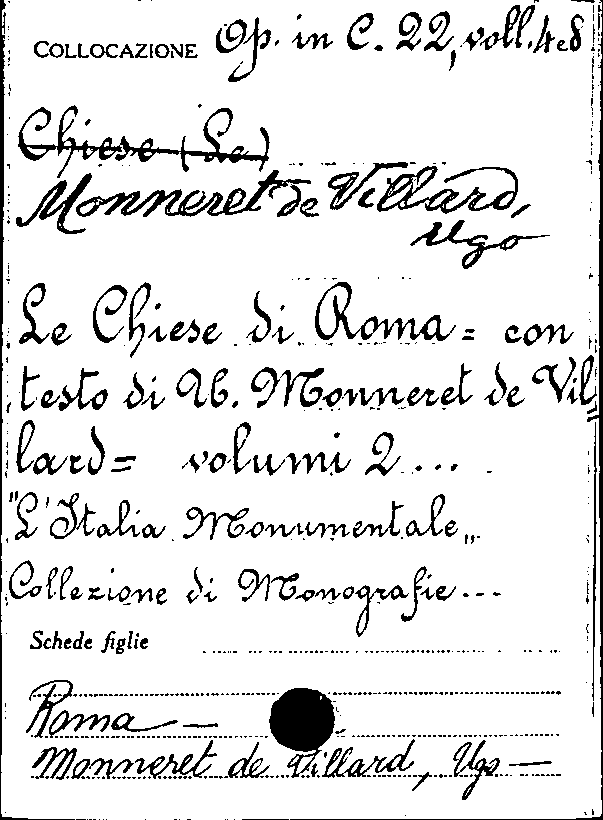 COLLOCAZIONE Op. in C. 22, voll. 4 e 8
Chiese (Le)
Monneret de Villard,
Ugo
Le Chiese di Roma = con
testo di U. Monneret de Vil=
lard = volumi 2 ...
"L'Italia Monumentale„
Collezione di Monografie ...
Schede figlie
Roma —
Monneret de Villard, Ugo —